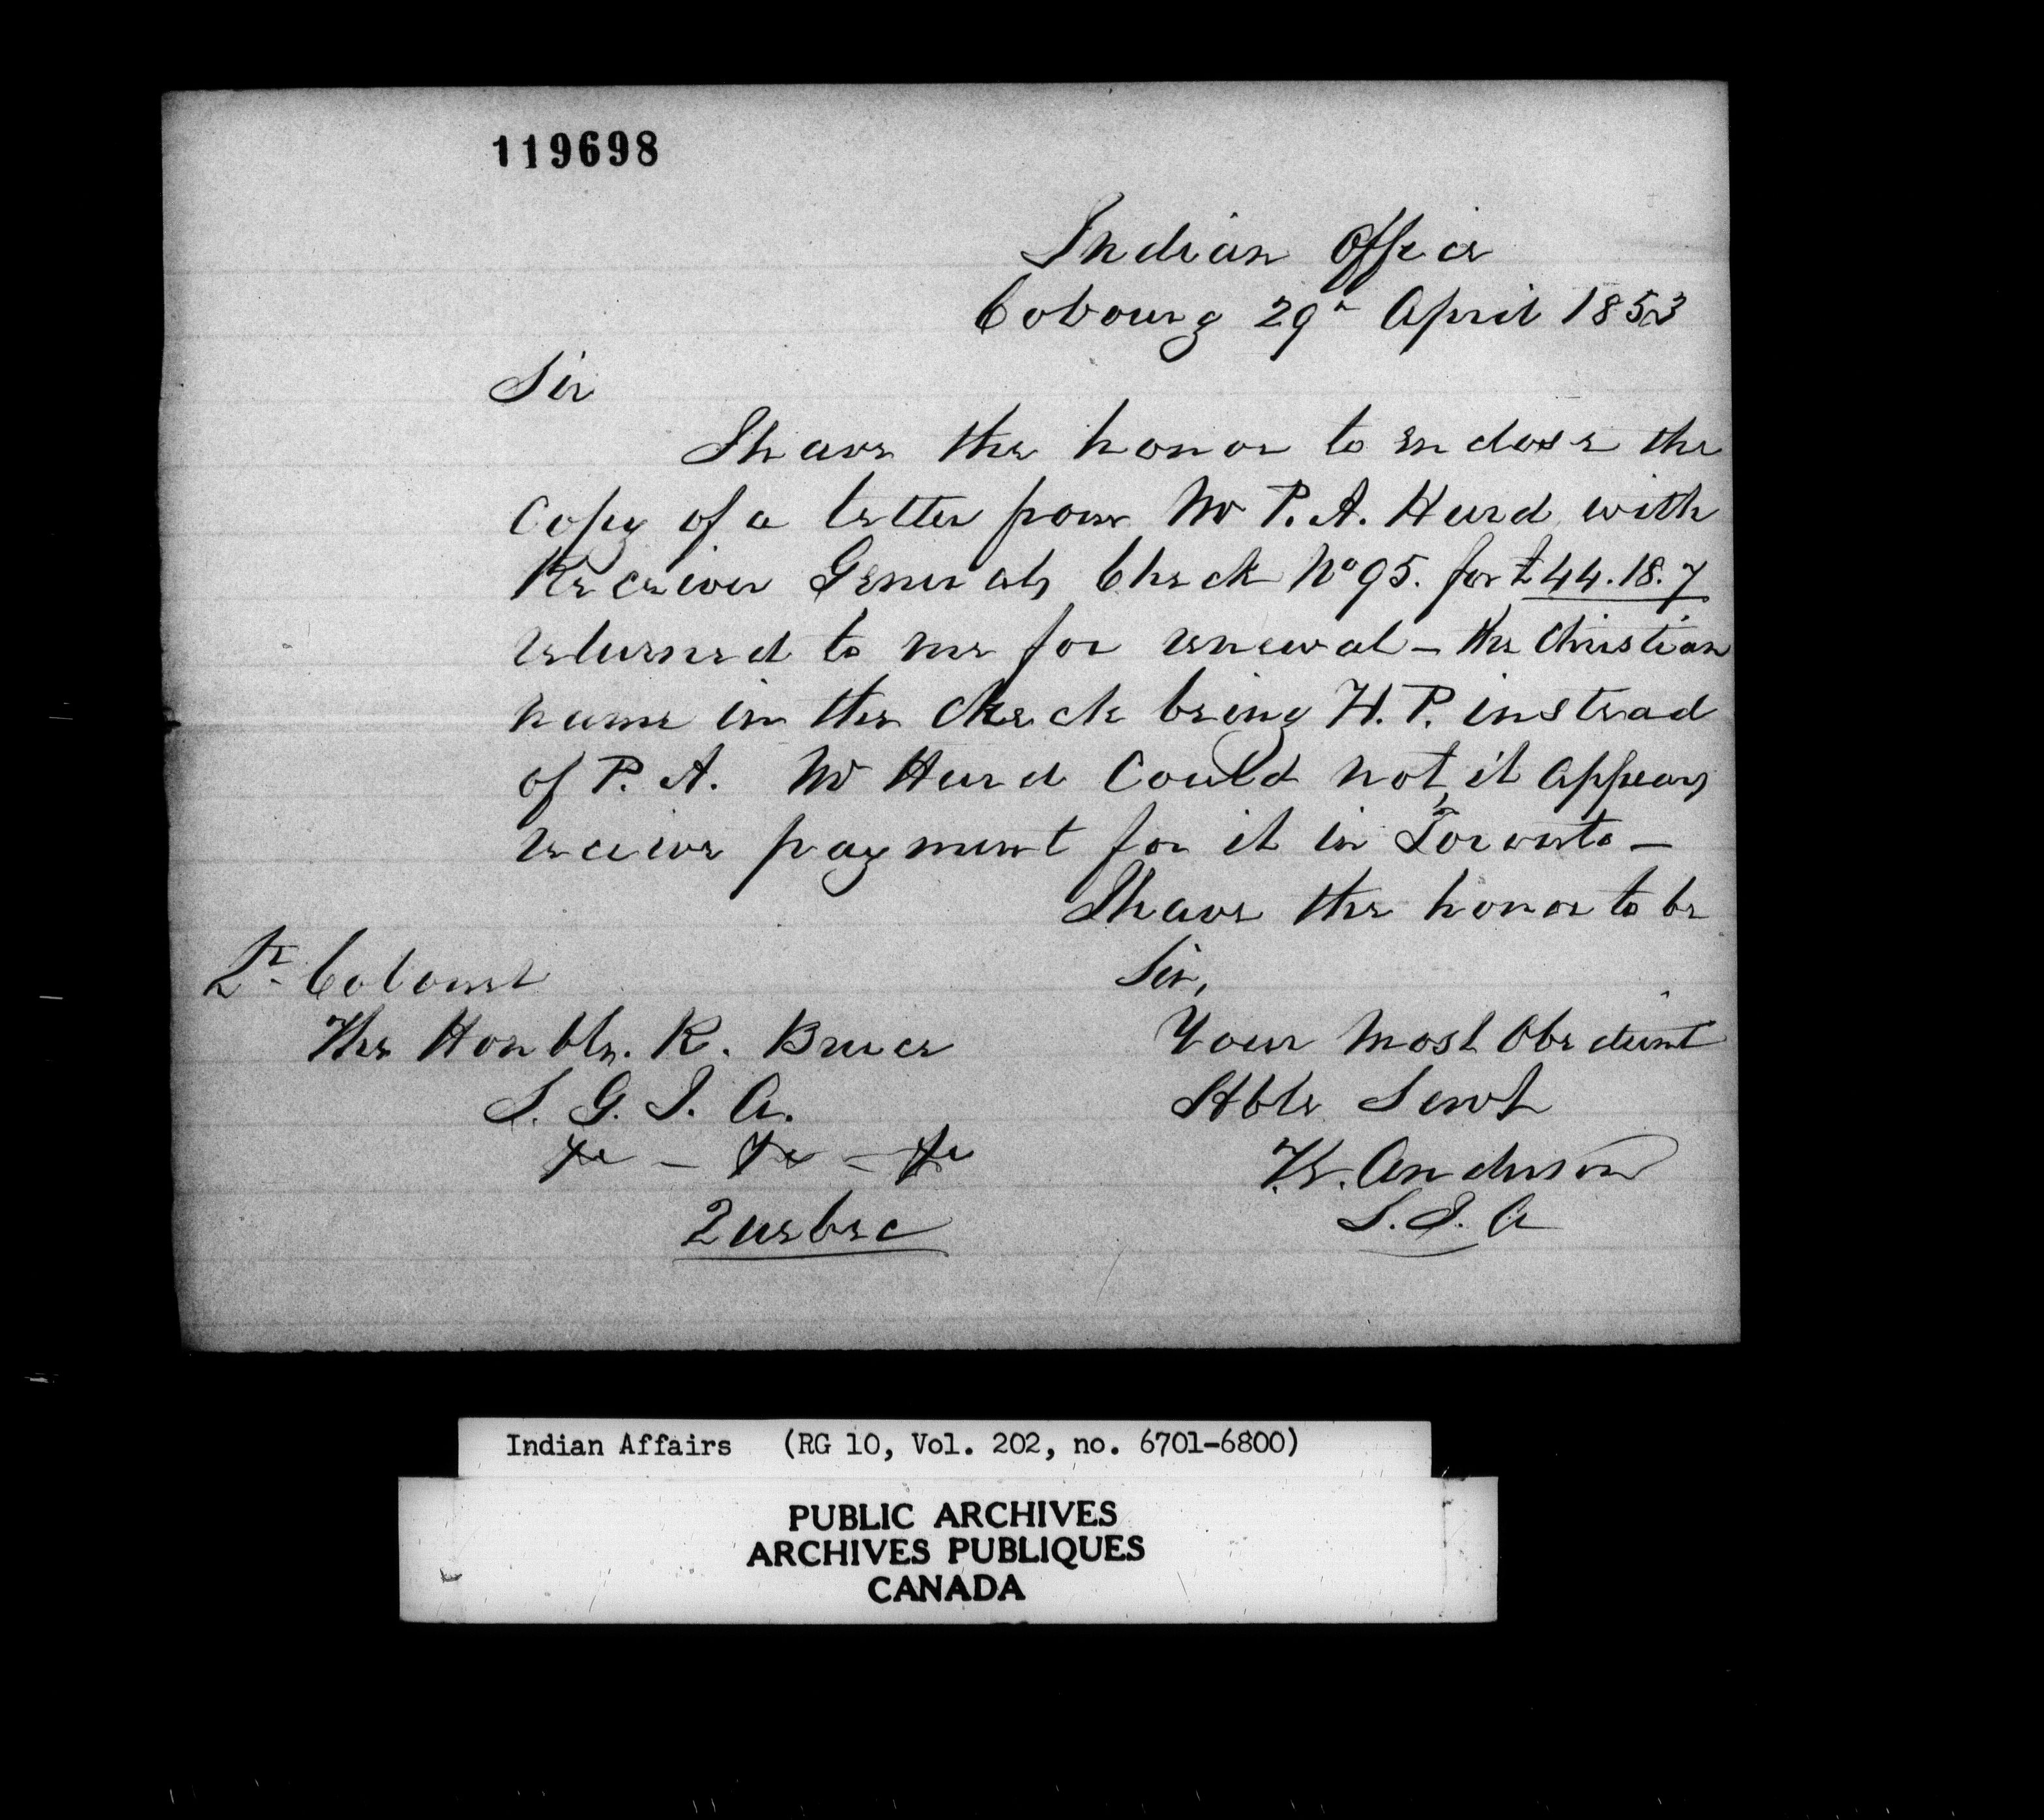 119698
Indian Office
Cobourg 29th April 1853
Sir
I have the honor to enclose the
Copy of a letter from Mr P. A. Hurd with
Receiver Generals Check No 95. for £44.18.7
returned to me for renewal – the Christian
name in the Check being H. P. instead
of P. A. Mr Hurd Could not, it appears
receive payment for it in Toronto –
I have the honor to be
Sir,
Your Most Obedient
Hble Servt
T. G. Anderson
S. I. A
Lt Colonel
The Honble. R. Bruce
S. G. I. A.
&c – &c – &c
Quebec
Indian Affairs (RG 10, Vol. 202, no. 6701-6800)
PUBLIC ARCHIVES
ARCHIVES PUBLIQUES
CANADA